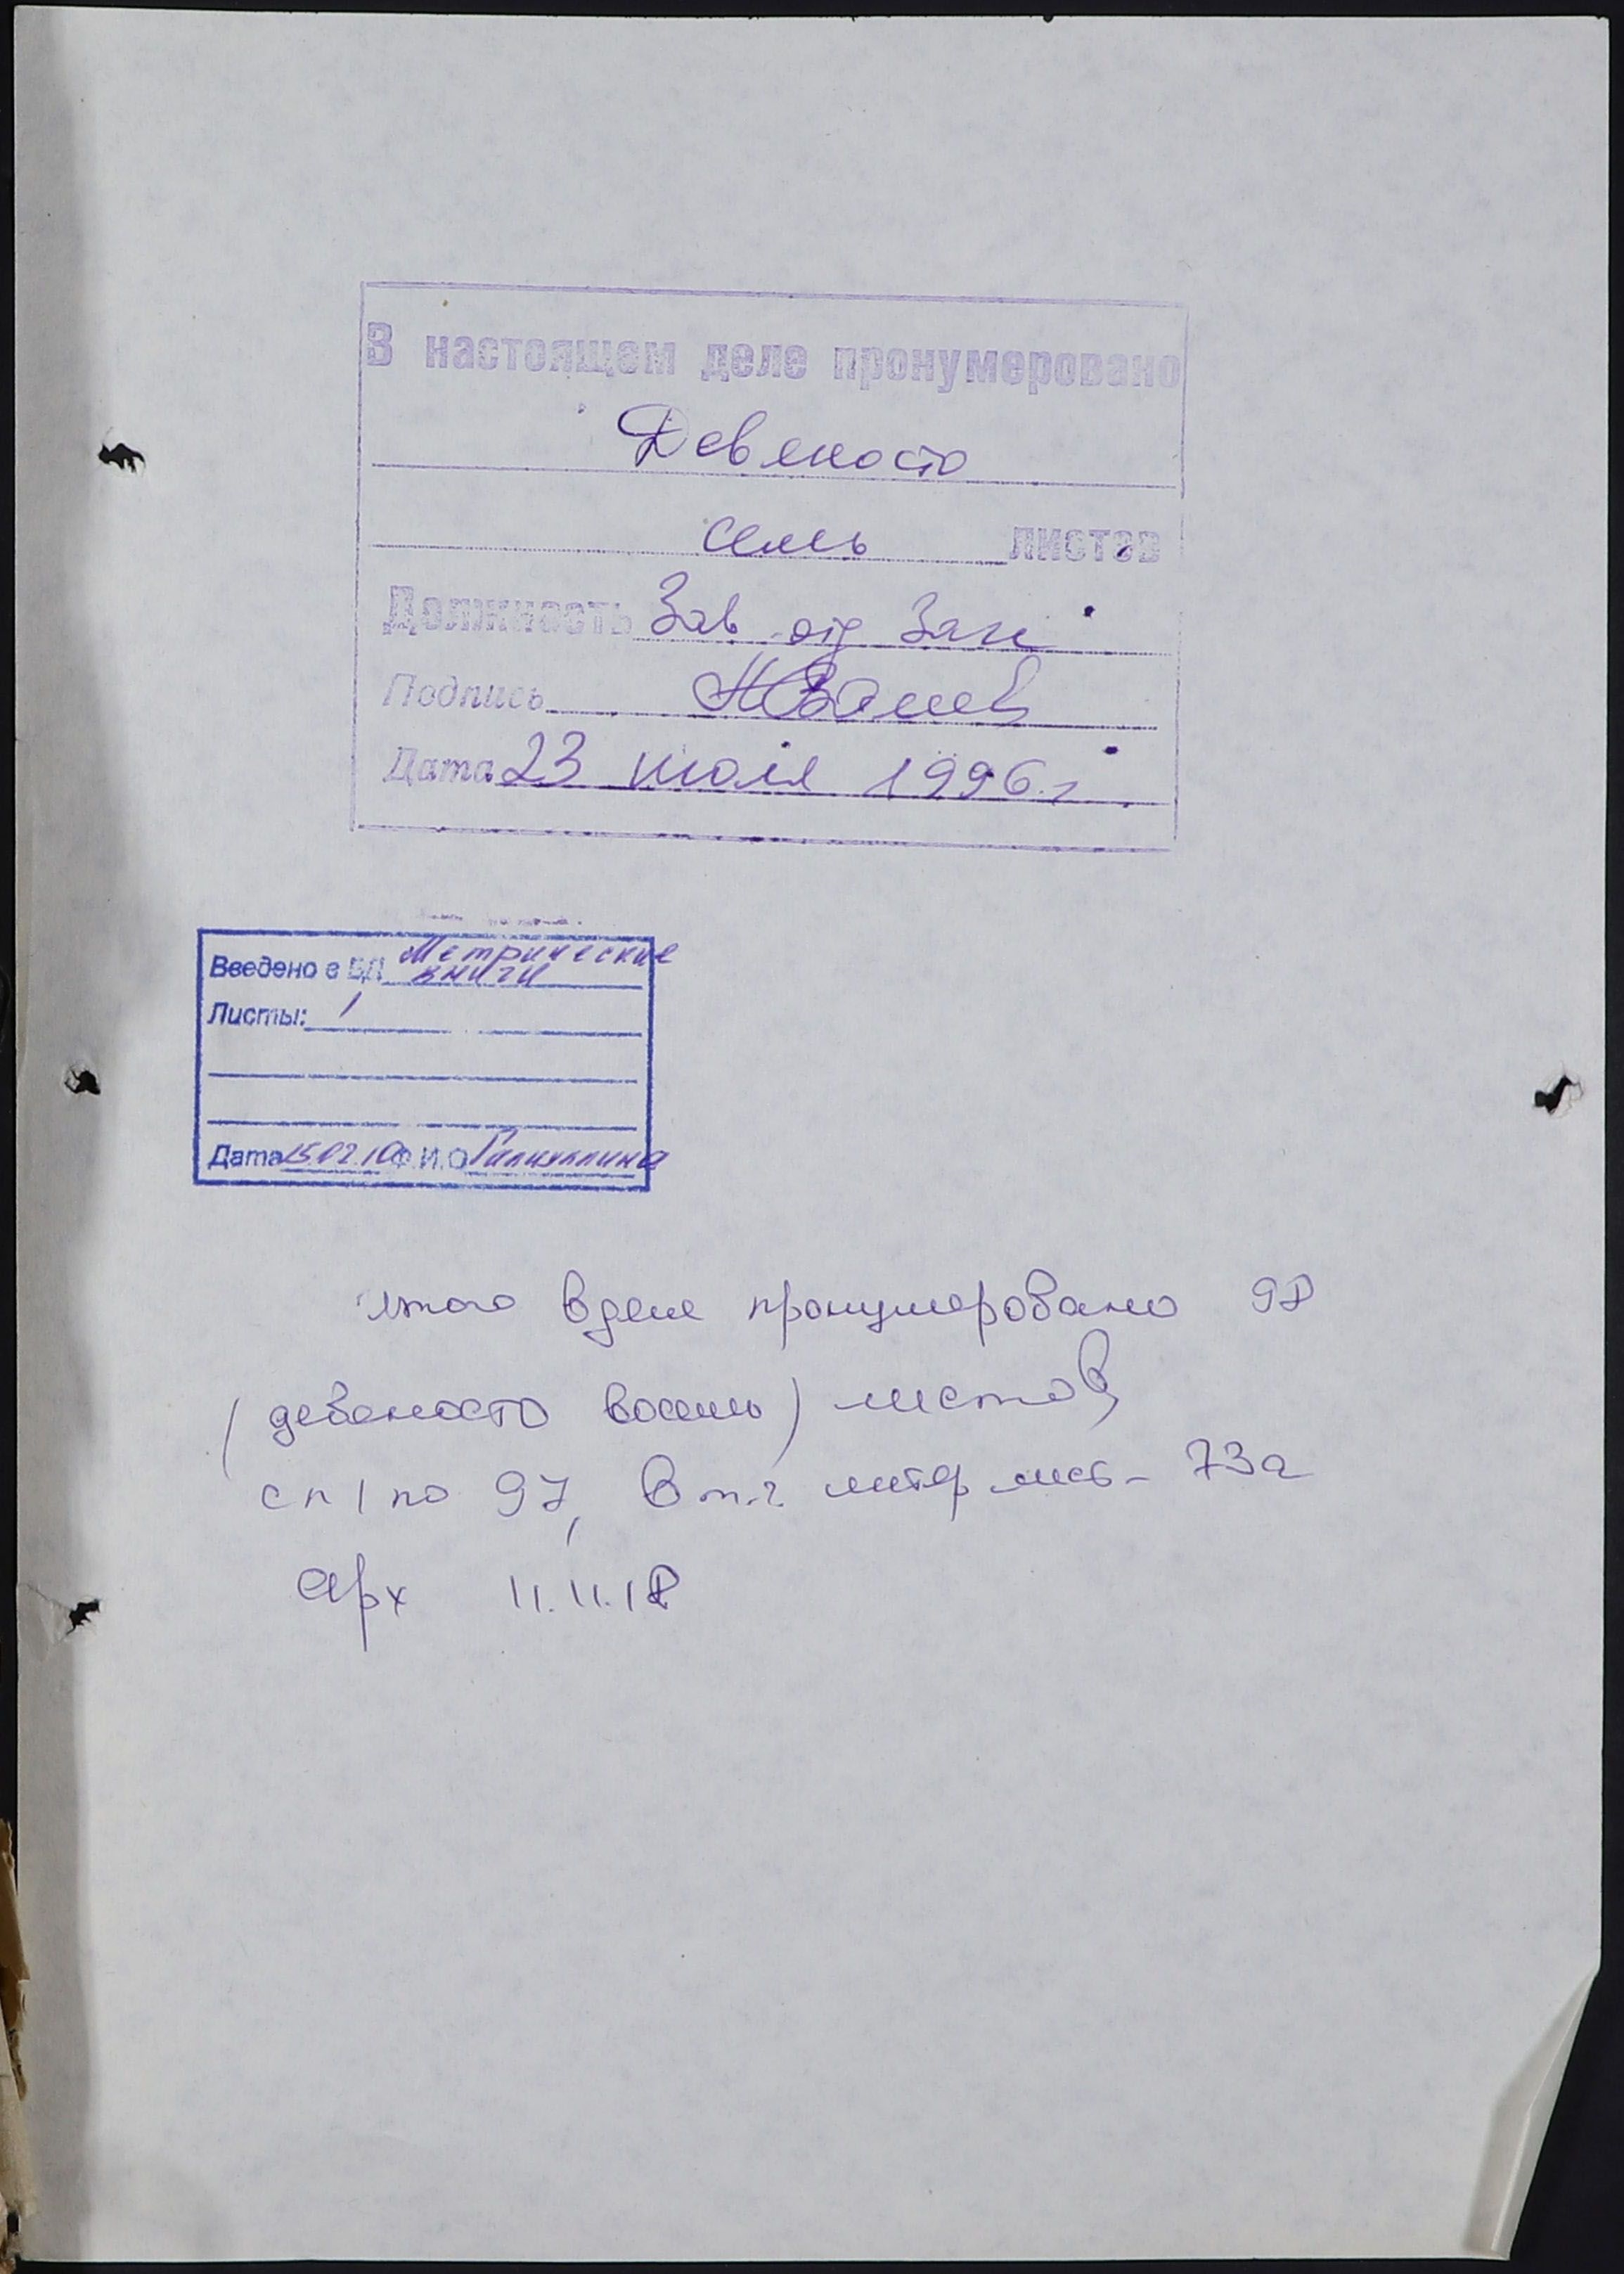 В настоящем деле пронумеровано
Девяносто
семь листов
Должность Зав. отд Загс
Подпись
Дата 23 июля 1996 г.
Введено в БД Метрические
книги
Листы: 1
Дата 15.02.10 Ф.И.О Галиуллина
Итого в деле пронумеровано 98
(девяносто восемь) листов
с л 1 по 97, в т.ч. литер лист - 73а
Арх 11.11.18